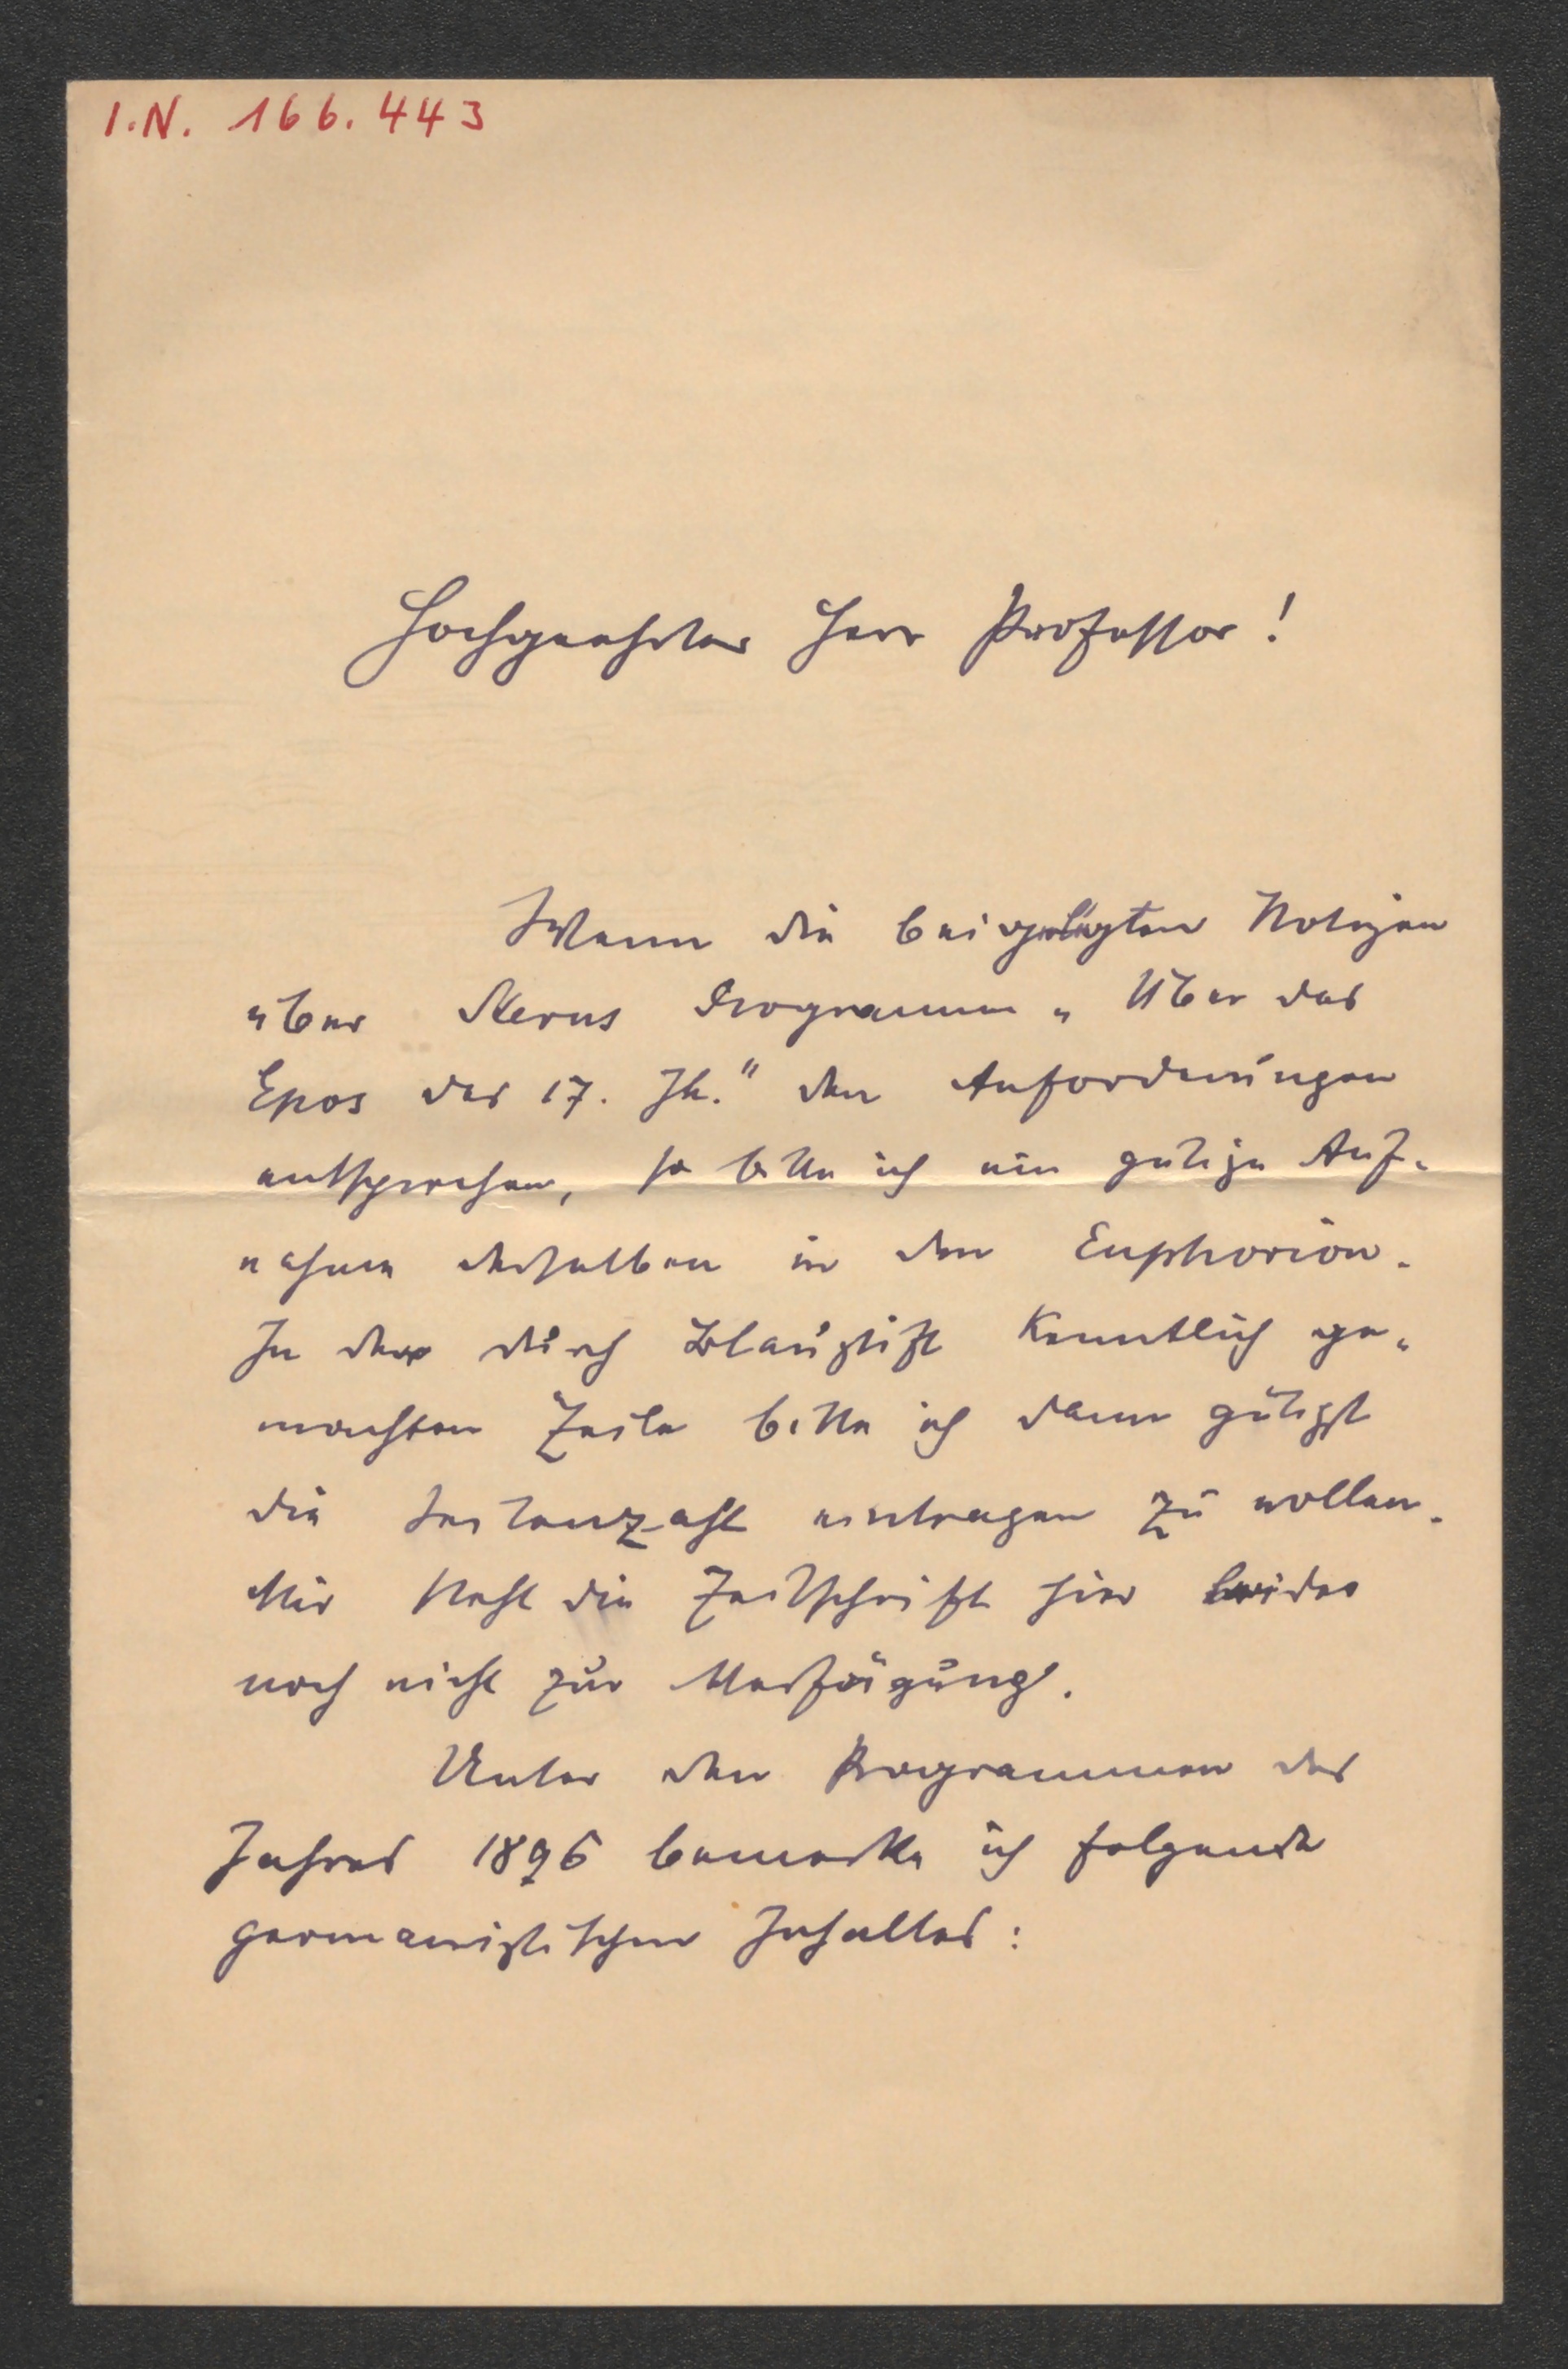 I.N. 166.443
Hochgeehrter Herr Professor!
Wenn die beigelegten Notizen
über Sterns Programm „Über das
Epos des 17. Jh." den Anforderungen
entsprechen, so bitte ich um gütige Auf-
nahme derselben in den Euphorion.
In der durch Blaustift kenntlich ge-
machten Zeile bitte ich dann gütigst
die Seitenzahl eintragen zu wollen.
Mir steht die Zeitschrift hier leider
noch nicht zur Verfügung.
Unter den Programmen des
Jahres 1896 bemerkte ich folgende
germanistischen Inhaltes: